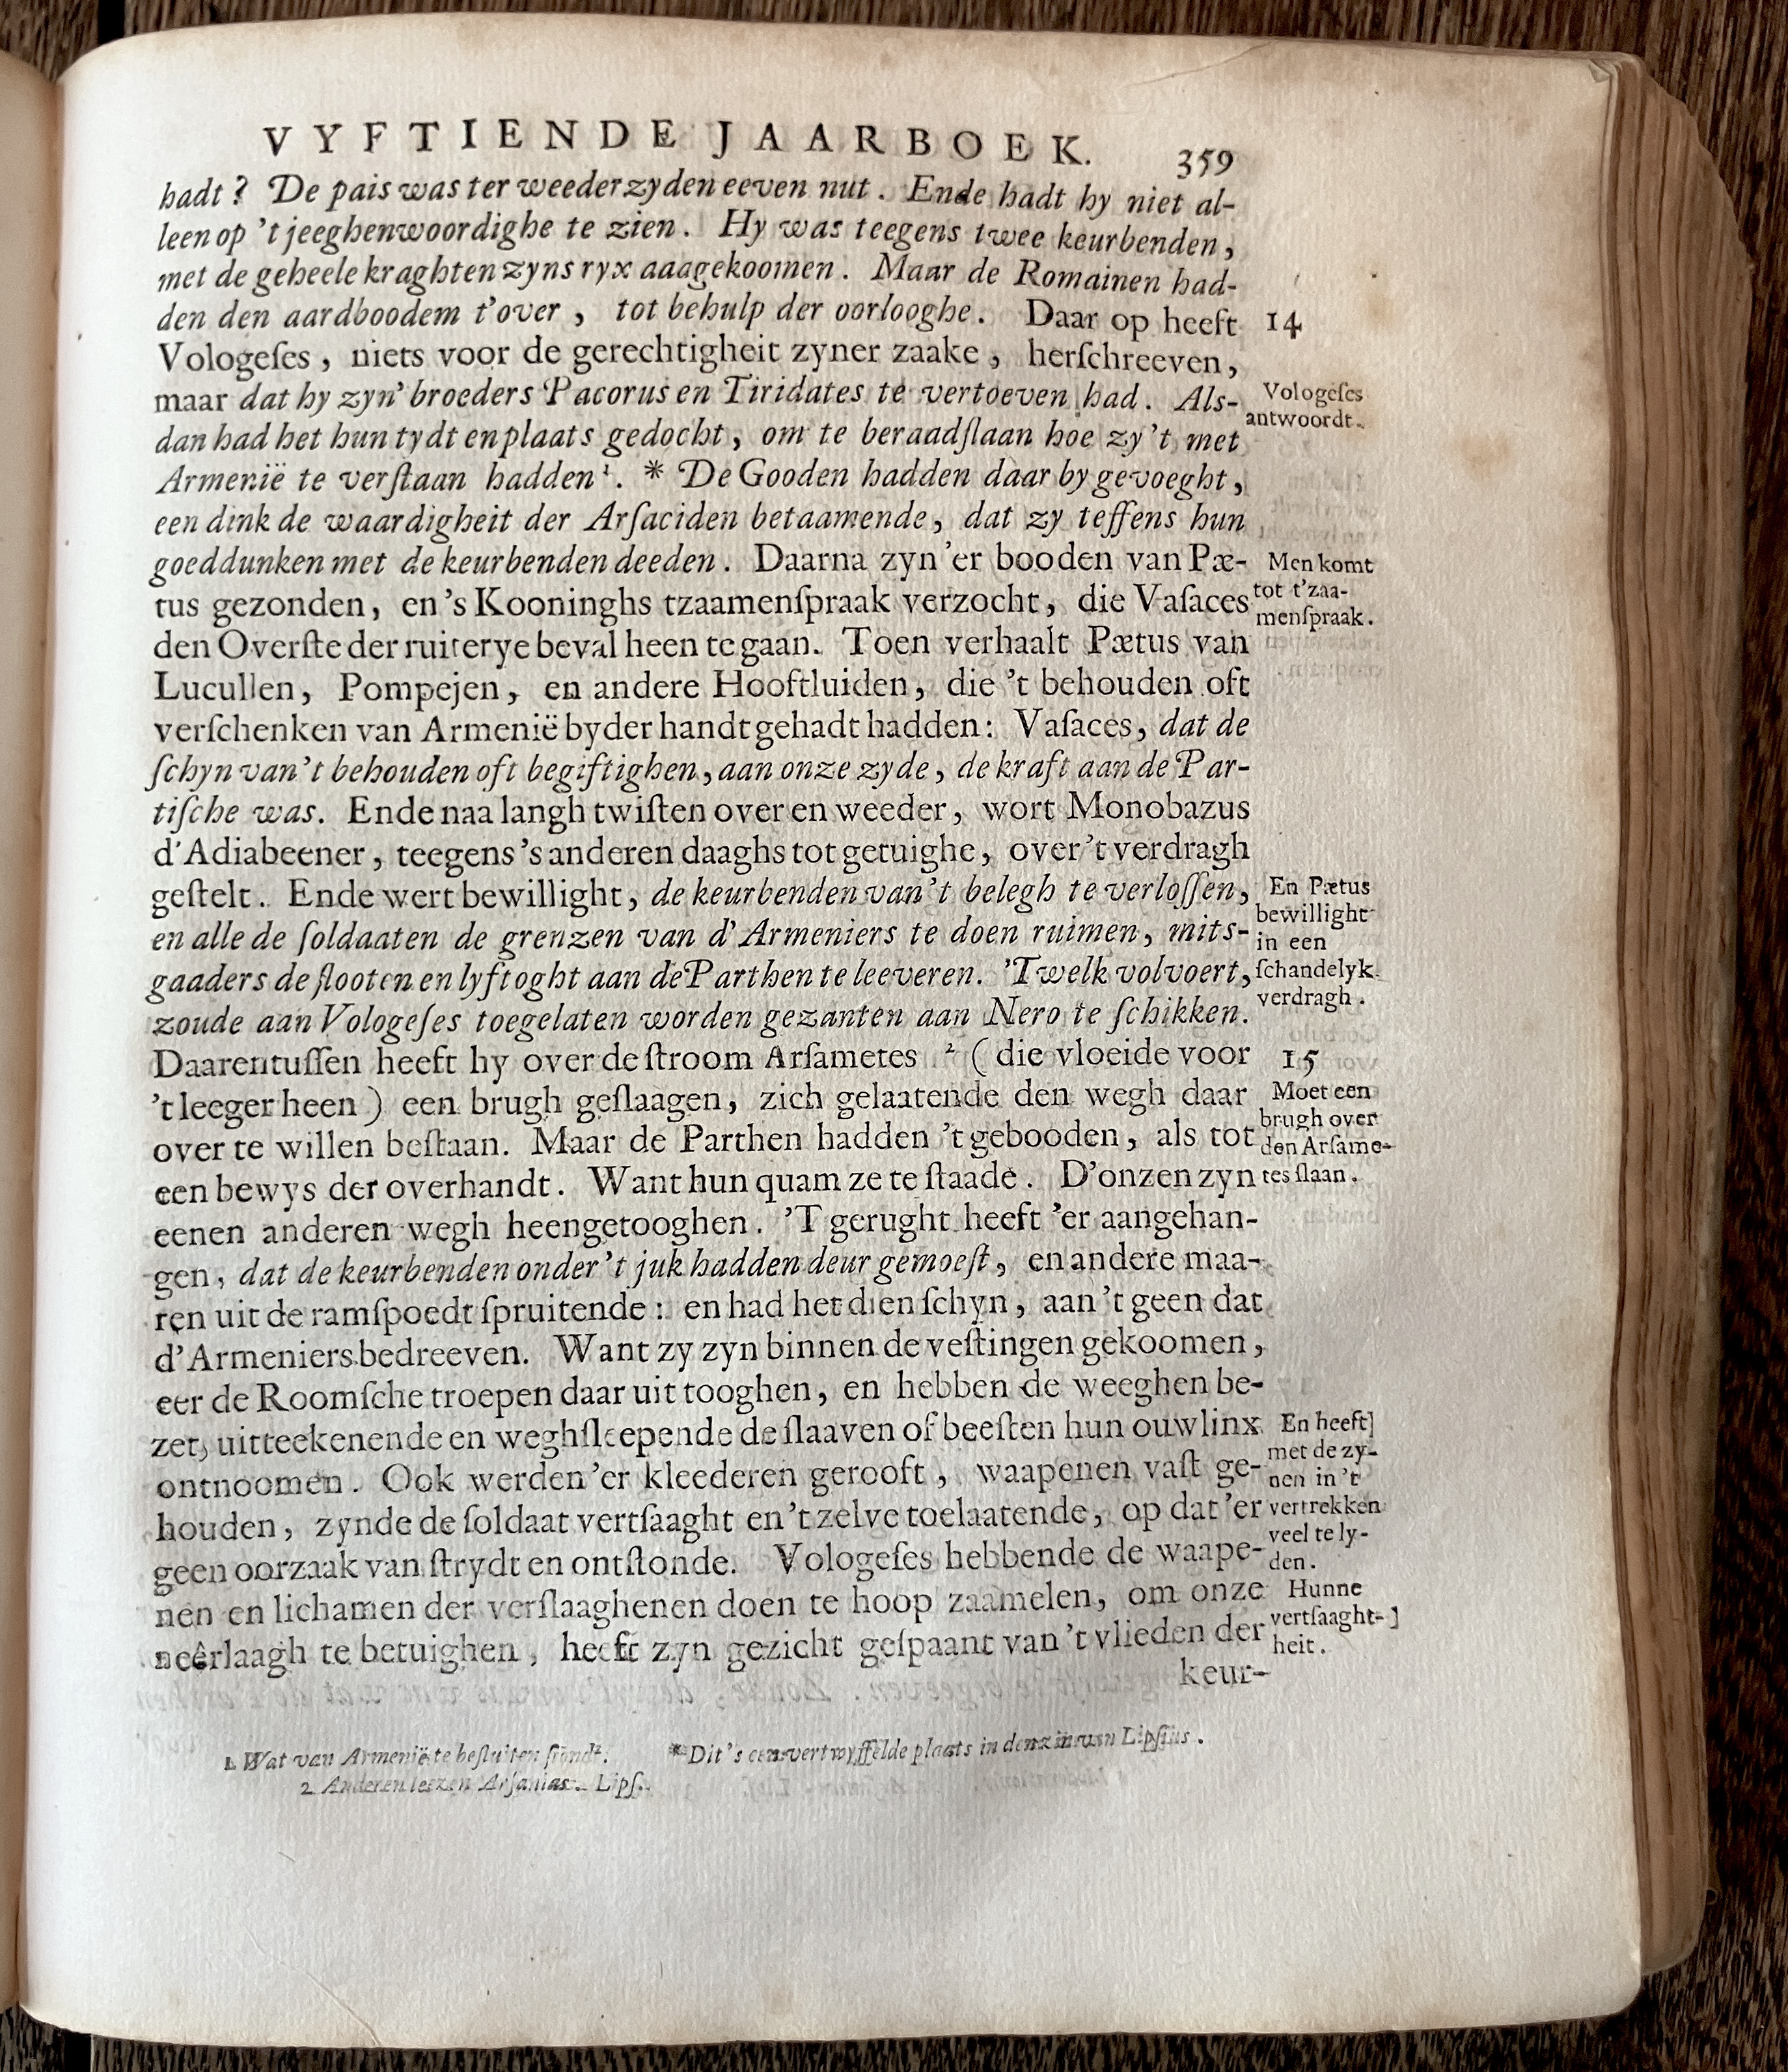 VYFTIENDE JAARBOEK. 359
hadt? De pais was ter weederzyden eeven nut. Ende hadt hy niet al-
leen op 't jeeghenwoordighe te zien. Hy was teegens twee keurbenden,
met de geheele kraghten zyns ryx aaagekoomen. Maar de Romainen had-
den den aardboodem t'over, tot behulp der oorlooghe. Daar op heeft
14
Vologeſes, niets voor de gerechtigheit zyner zaake, herſchreeven,
maar dat hy zyn' broeders Pacorus en Tiridates te vertoeven had. Als-
Vologeſes
antwoordt.
dan had het hun tydt en plaats gedocht, om te beraadſlaan hoe zy 't met
Armenië te verſtaan hadden¹. * De Gooden hadden daar by gevoeght,
een dink de waardigheit der Arſaciden betaamende, dat zy teffens hun
goeddunken met de keurbenden deeden. Daarna zyn 'er booden van Pæ-
Men komt
tot t'zaa-
menſpraak.
tus gezonden, en 's Kooninghs tzaamenſpraak verzocht, die Vaſaces
den Overſte der ruiterye beval heen te gaan. Toen verhaalt Pætus van
Lucullen, Pompejen, en andere Hooftluiden, die 't behouden oft
verſchenken van Armenië byder handt gehadt hadden: Vaſaces, dat de
ſchyn van 't behouden oft begiftighen, aan onze zyde, de kraft aan de Par-
tiſche was. Ende naa langh twiſten over en weeder, wort Monobazus
d'Adiabeener, teegens 's anderen daaghs tot getuighe, over 't verdragh
geſtelt. Ende wert bewillight, de keurbenden van 't belegh te verloſſen,
En Pætus
bewillight
in een
ſchandelyk
verdragh.
en alle de ſoldaaten de grenzen van d' Armeniers te doen ruimen, mits-
gaaders de ſlooten en lyftoght aan de Parthen te leeveren. 'Twelk volvoert,
zoude aan Vologeſes toegelaten worden gezanten aan Nero te ſchikken.
Daarentuſſen heeft hy over de ſtroom Arſametes ² (die vloeide voor
15
't leeger heen) een brugh geſlaagen, zich gelaatende den wegh daar
Moet een
brugh over
den Arſame-
tes ſlaan.
over te willen beſtaan. Maar de Parthen hadden 't gebooden, als tot
een bewys der overhandt. Want hun quam ze te ſtaade. D'onzen zyn
eenen anderen wegh heengetooghen. 'T gerught heeft 'er aangehan-
gen, dat de keurbenden onder 't juk hadden deur gemoeſt, en andere maa-
ren uit de ramſpoedt ſpruitende: en had het dien ſchyn, aan 't geen dat
d'Armeniers bedreeven. Want zy zyn binnen de veſtingen gekoomen,
eer de Roomſche troepen daar uit tooghen, en hebben de weeghen be-
zet, uitteekenende en weghſleepende de ſlaaven of beeſten hun ouwlinx
En heeft]
met de zy-
nen in 't
vertrekken
veel te ly-
den.
ontnoomen. Ook werden 'er kleederen gerooft, waapenen vaſt ge-
houden, zynde de ſoldaat vertſaaght en 't zelve toelaatende, op dat 'er
geen oorzaak van ſtrydt en ontſtonde. Vologeſes hebbende de waape-
nen en lichamen der verſlaaghenen doen te hoop zaamelen, om onze
Hunne
vertſaaght-]
heit.
neêrlaagh te betuighen, heeft zyn gezicht geſpaant van 't vlieden der
keur-
1 Wat van Armenië te beſluiten ſtondt. * Dit 's een vertwyffelde plaats in den zin van Lipſius.
2 Anderen leezen Arſanias. Lipſ.